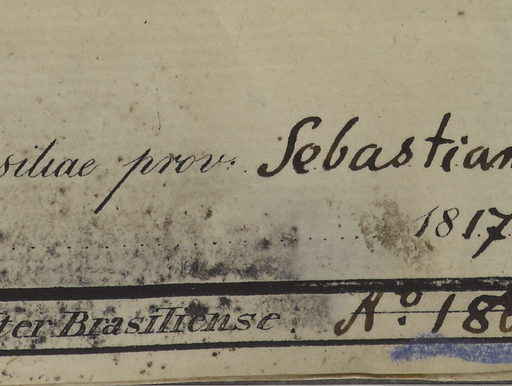 siliae prov. Sebastian
1817
ter Brasiliense. Aº. 18